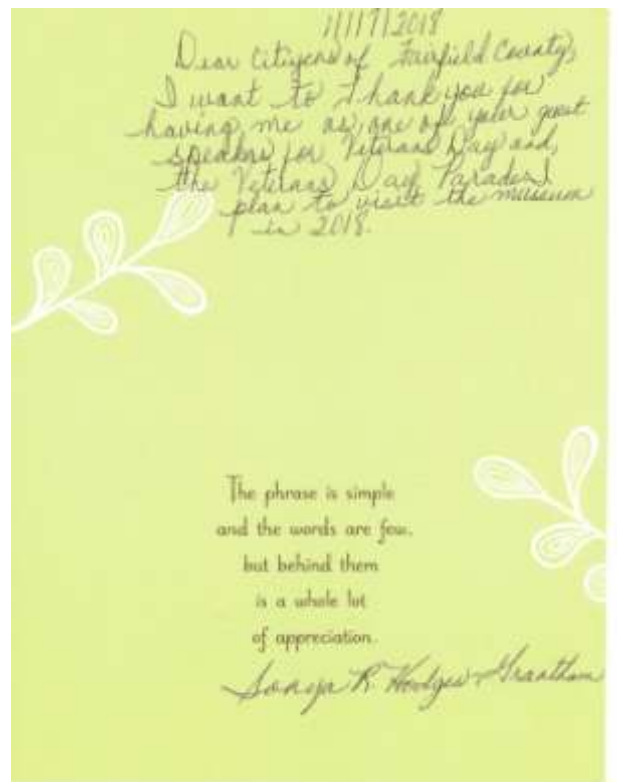 11/17/2018
Dear Citizens of Fairfield County,
I want to Thank you for
having me as one of your guest
speakers for Veterans Day and,
the Veterans Day Parade. I
plan to visit the museum
in 2018.
The phrase is simple
and the words are few,
but behind them
is a whole lot
of appreciation.
Sonya R Hodges-Grantham